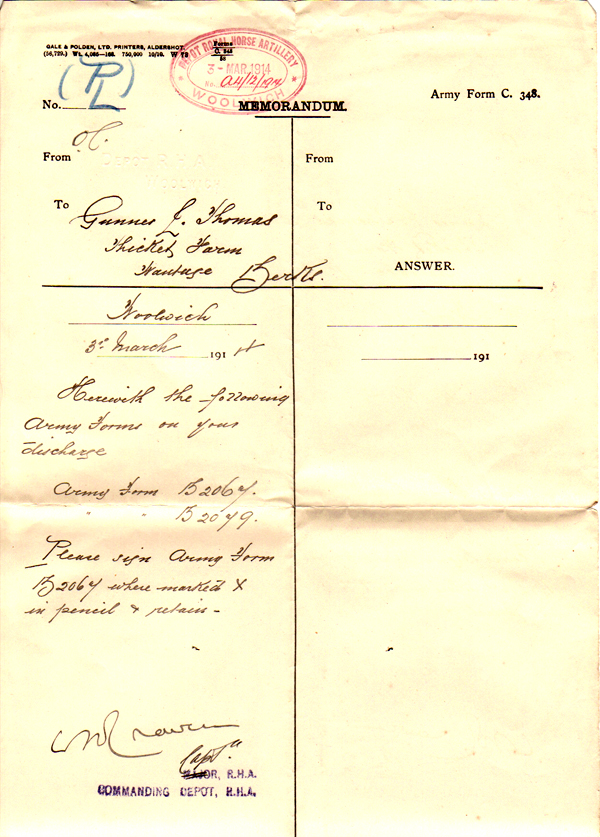 GALE & POLDEN, LTD. PRINTERS, ALDERSHOT.
(56,729.) Wt. 4,086—168. 750,000 10/10. W 79
Forms
C. 348
58
DEPOT ROYAL HORSE ARTILLERY
3 - MAR 1914
No. A4/12/914
WOOLWICH
(PL)
No.
MEMORANDUM.
Army Form C. 348.
From O.C.
DEPOT R.H.A.
To Gunner J. Thomas
Thicket Farm
Wantage Berks.
Woolwich
3rd March 1914
Herewith the following
Army Forms on your
discharge
Army Form B2067.
" " B2079.
Please sign Army Form
B2067 where marked X
in pencil & retain -
Capt.
MAJOR, R.H.A.
COMMANDING DEPOT, R.H.A.
From
To
ANSWER.
191